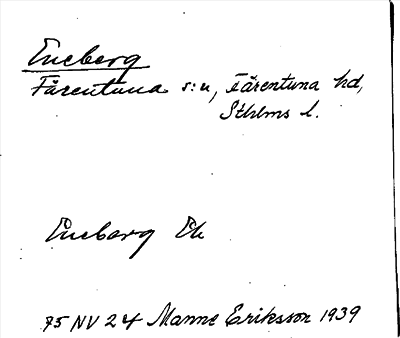 Eneberg
Färentuna s:n, Färentuna hd,
Sthlms l.
Eneberg Ek
75 NV 24 Manne Eriksson 1939